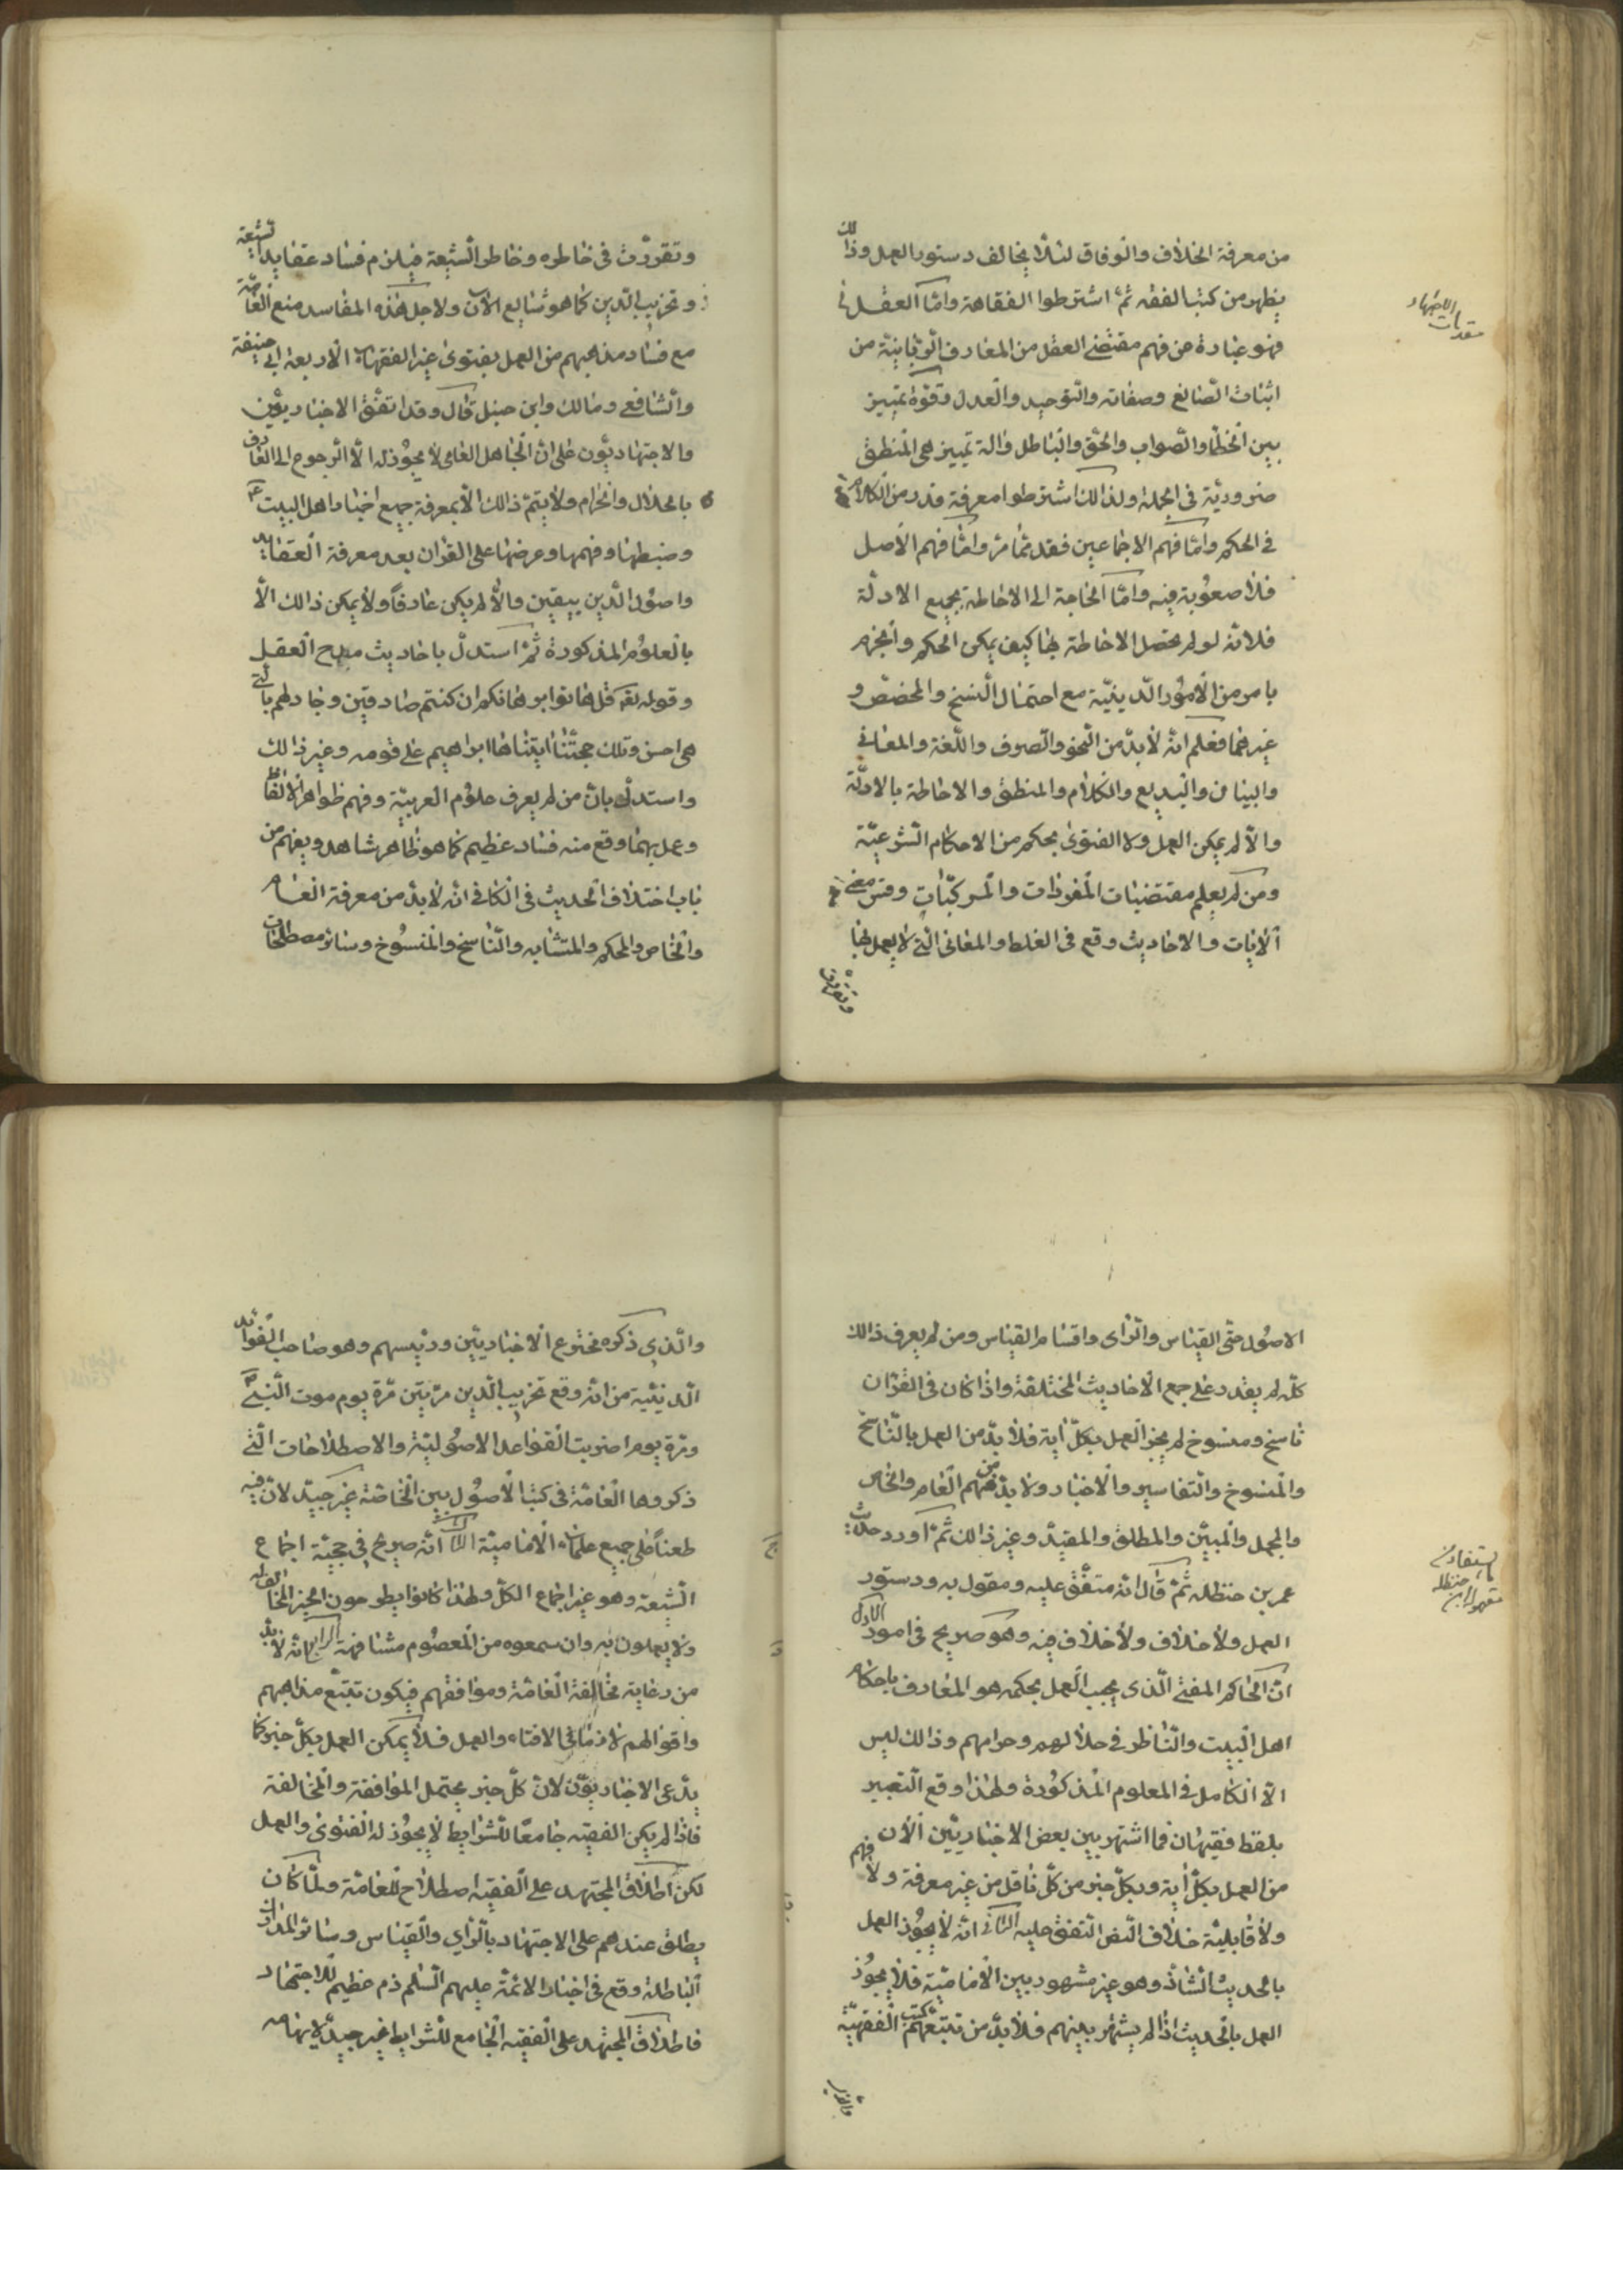 من معرفة الخلاف والوفاق لئلّا يخالف دستور العمل وذالك
يظهر من كتب الفقه ثمّ اشترطوا الفقاهة وامّا العقل
مقدمات الاجتهاد
فهو عبارة عن فهم مقتضى العقل من المعارف الرّبّانيّة من
اثبات الصّانع وصفاته والتّوحيد والعدل وقوّة تميز
بين الخطأ والصّواب والحقّ والباطل والة تميز هى المنطق
ضروريّة فى الجملة ولذالك اشترطوا معرفة قدر من الكلام
فى الحكم وامّا فهم الاجماعين فقد ممّا مرّ وامّا فهم الاصل
فلا صعوبة فيه وامّا الحاجة الى الاحاطة بجميع الادلّة
فلانّه لو لم يحصل الاحاطة بها كيف يمكن الحكم والجزم
بامر من الامور الدّينيّة مع احتمال النسخ والمخصّص و
غيرهما فعلم انّه لا بدّ من النّحو والصّرف واللّغة والمعانى
والبيان والبديع والكلام والمنطق والاحاطة بالادلّة
والّا لم يمكن العمل ولا الفتوى بحكم من الاحكام الشّرعيّة
ومن لم يعلم مقتضيات المفردات والمركّبات وفتش معنى
الايات والاحاديث وقع فى الغلط والمعانى الّتى لا يعمل بها
وتقررت
وتقرّرت فى خاطره وخاطر الشّيعة فيلزم فساد عقايد الشيعة
وتخريب الدّين كما هو شايع الآن ولاجل هذه المفاسد منع العامّة
مع فساد مذاهبهم من العمل بفتوى غير الفقهاء الاربعة ابى حنيفة
والشّافعى ومالك وابن حنبل قال وقد اتفق الاخباريّون
والاجتهاديّون على انّ الجاهل العامى لا يجوز له الّا الرجوع الى العارف
بالحلال والحرام ولا يتمّ ذالك الّا بمعرفة جميع اخبار اهل البيت ع
وضبطها وفهمها وعرضها على القران بعد معرفة العقايد
واصول الدّين بيقين والّا لم يكن عارفاً ولا يمكن ذالك الّا
بالعلوم المذكورة ثمّ استدلّ باحاديث مدح العقل
وقوله تعه قل هاتوا برهانكم ان كنتم صادقين وجادلهم بالتى
هى احسن وتلك حجّتنا اتيناها ابراهيم على قومه وغير ذالك
واستدلّ بانّ من لم يعرف علوم العربيّة وفهم ظواهر الالفاظ
وعمل بهما وقع منه فساد عظيم كما هو ظاهر شاهد ويفهم من
باب اختلاف الحديث فى الكافى انّه لا بدّ من معرفة العام
والخاص والمحكم والمتشابه والنّاسخ والمنسوخ وسائر مصطلحات
الاصول حتّى القياس والرّاى واقسام القياس ومن لم يعرف ذالك
كلّه لم يقدر على جمع الاحاديث المختلفة واذا كان فى القران
ناسخ ومنسوخ لم يجز العمل بكلّ اية فلا بدّ من العمل بالنّاسخ
والمنسوخ والتفاسير والاخبار ولا بدّ من فهم العام والخاص
والمجمل والمبيّن والمطلق والمقيّد وغير ذالك ثمّ اورد حديث
عمر بن حنظله ثمّ قال انّه متفّق عليه ومقول به ودستور
العمل ولا خلاف ولا خلاف فيه وهو صريح فى امور الاول
انّ الحاكم المفتى الّذى يجب العمل بحكمه هو العارف باحكام
اهل البيت والنّاظر فى حلالهم وحرامهم وذالك ليس
الّا الكامل فى المعلوم المذكورة ولهذا وقع التعبير
بلفظ فقيهان فما اشتهر بين بعض الاخباريّين الآن
من العمل بكلّ اية وبكلّ خبر من كلّ ناقل من غير معرفة ولا فهم
ولا قابليّة خلاف النّص المتّفق عليه الثانى انّه لا يجوز العمل
بالحديث الشّاذّ وهو غير مشهور بين الاماميّة فلا يجوز
العمل بالحديث اذا لم يشتهر بينهم فلا بدّ من تتبّع كتبهم الفقهيّة
والّذى
والّذى ذكره مخترع الاخباريّين ورئيسهم وهو صاحب الفوائد
المدنيّة من انّه وقع تخريب الدّين مرّتين مرّة يوم موت النّبىّ ص
ومرّة يوم اجريت القواعد الاصوليّة والاصطلاحات الّتى
ذكروها العامّة فى كتب الاصول بين الخاصّة غير جيّد لانّ فيه
طعناً على جميع علماء الاماميّة الثالث انّه صريح فى حجيّة اجماع
الشّيعة وهو غير اجماع الكلّ ولهذا كانوا يطرحون الخبر المخالف له
ولا يعملون به وان سمعوه من المعصوم مشافهة الرابع انّه لا بدّ
من رعاية مخالفة العامّة وموافقهم فيكون تتبّع مذاهبهم
واقوالهم لازما فى الافتاء والعمل فلا يمكن العمل بكلّ خبر كما
يدّعى الاخباريّون لانّ كلّ خبر يحتمل الموافقة والمخالفة
فاذا لم يكن الفقيه جامعًا للشّرايط لا يجوز له الفتوى والعمل
لكن اطلاق المجتهد على الفقيه اصطلاح للعامّة ولمّا كان
يطلق عندهم على الاجتهاد بالرّاي والقياس وسائر المدارك
الباطلة وقع فى اخبار الائمّة عليهم السّلم ذم عظيم للاجتهاد
فاطلاق المجتهد على الفقيه الجامع للشّرايط غير جيّد لايهامه